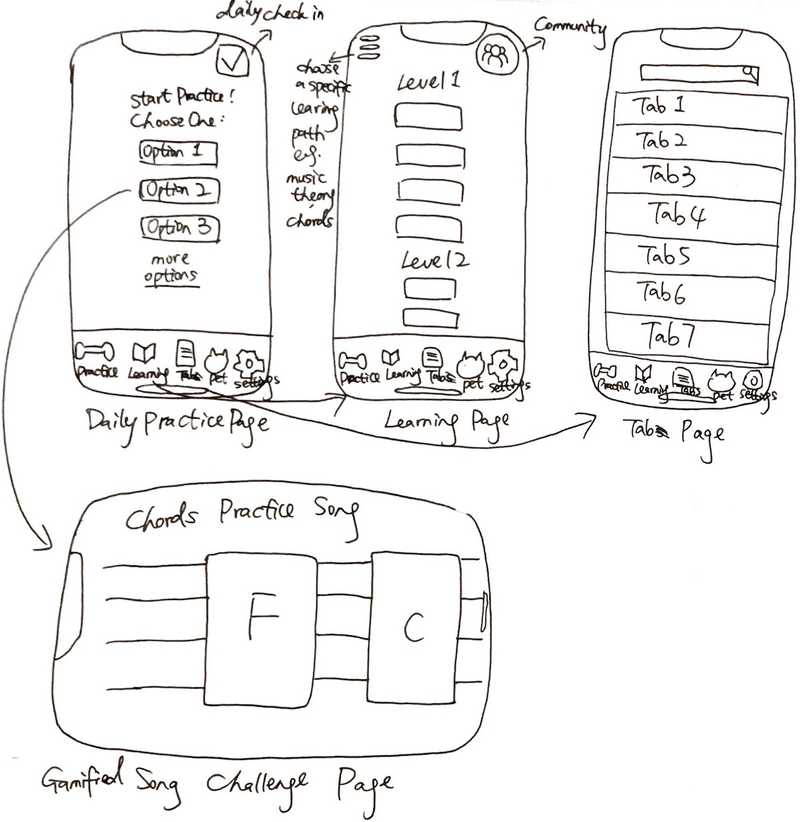 daily check in
start Practice!
Choose One:
Option 1
Option 2
Option 3
more
options
Practice
Learning
Tabs
pet
settings
Daily Practice Page
choose
a specific
learing
path
e.g.
music
theory
chords
Community
Level 1
Level 2
Practice
Learning
Tabs
pet
settings
Learning Page
Tab 1
Tab 2
Tab 3
Tab 4
Tab 5
Tab 6
Tab 7
Practice
Learning
Tabs
pet
settings
Tab Page
Chords Practice Song
F
C
Gamified Song Challenge Page